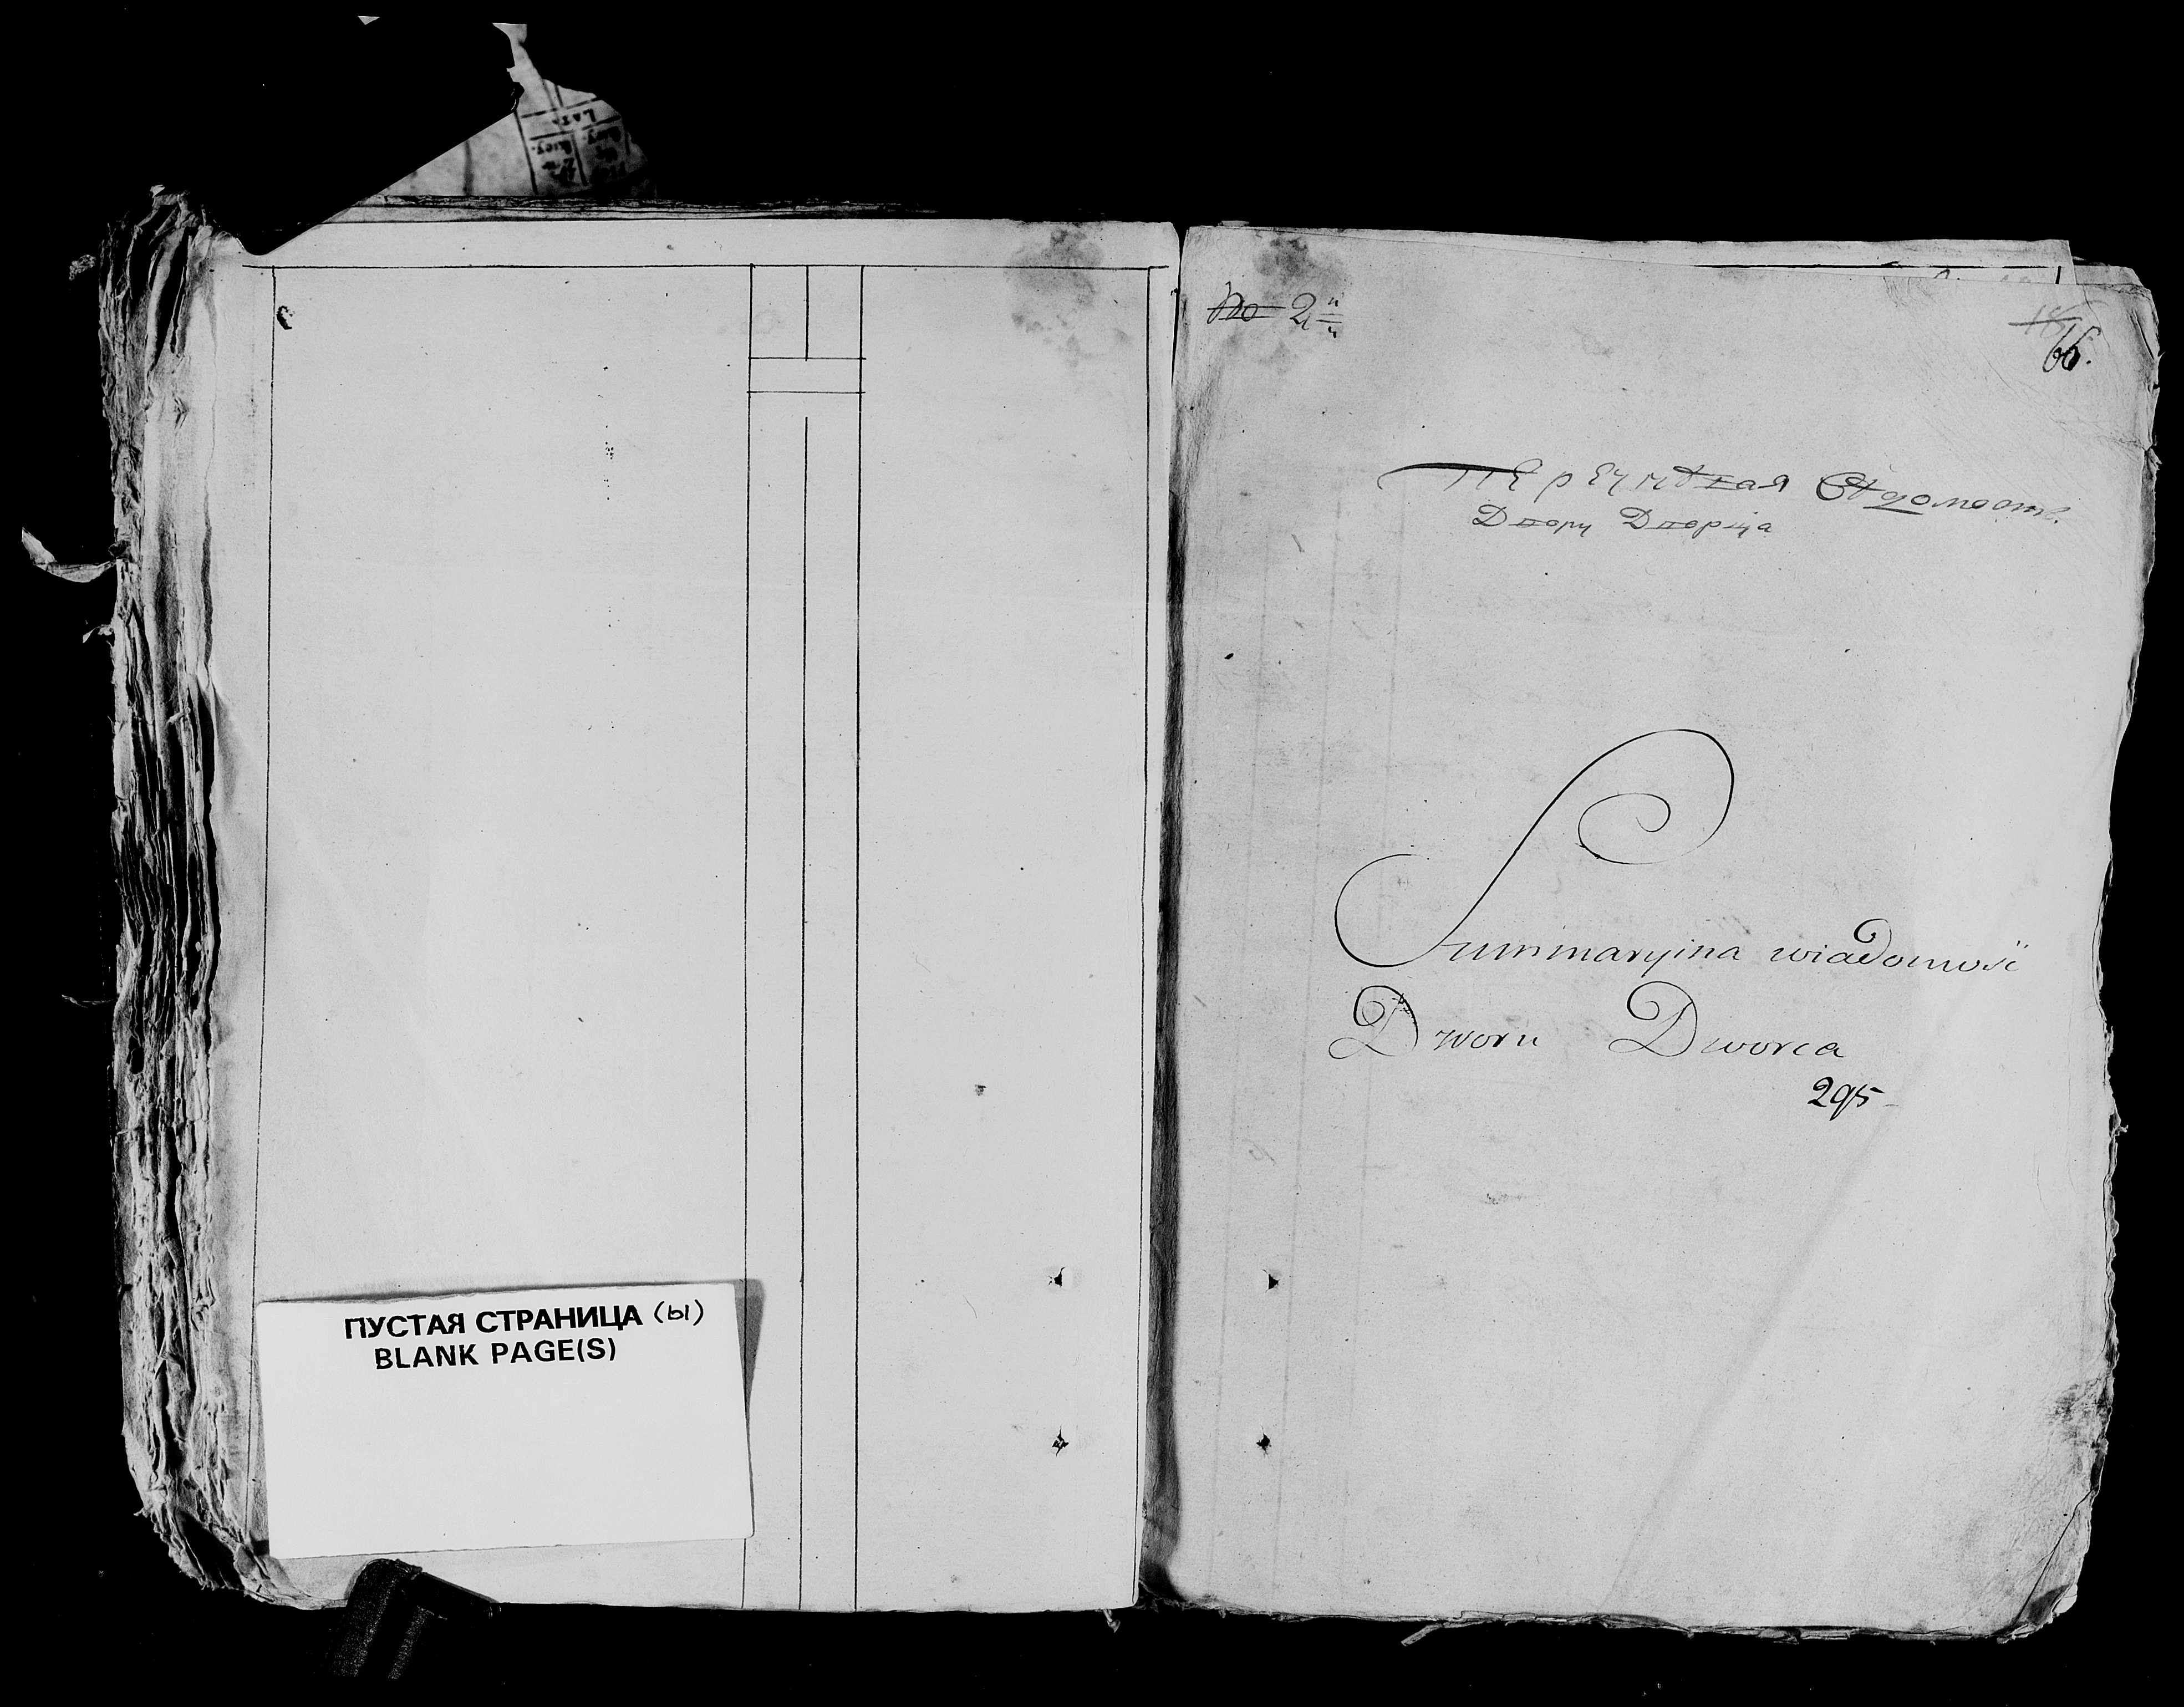 ПУСТАЯ СТРАНИЦА (ы)
BLANK PAGE(S)
No 2й
66.
Перечневая Вѣдомость
Двору Дворца
Summaryina wiadomość
Dworu Dworca
295